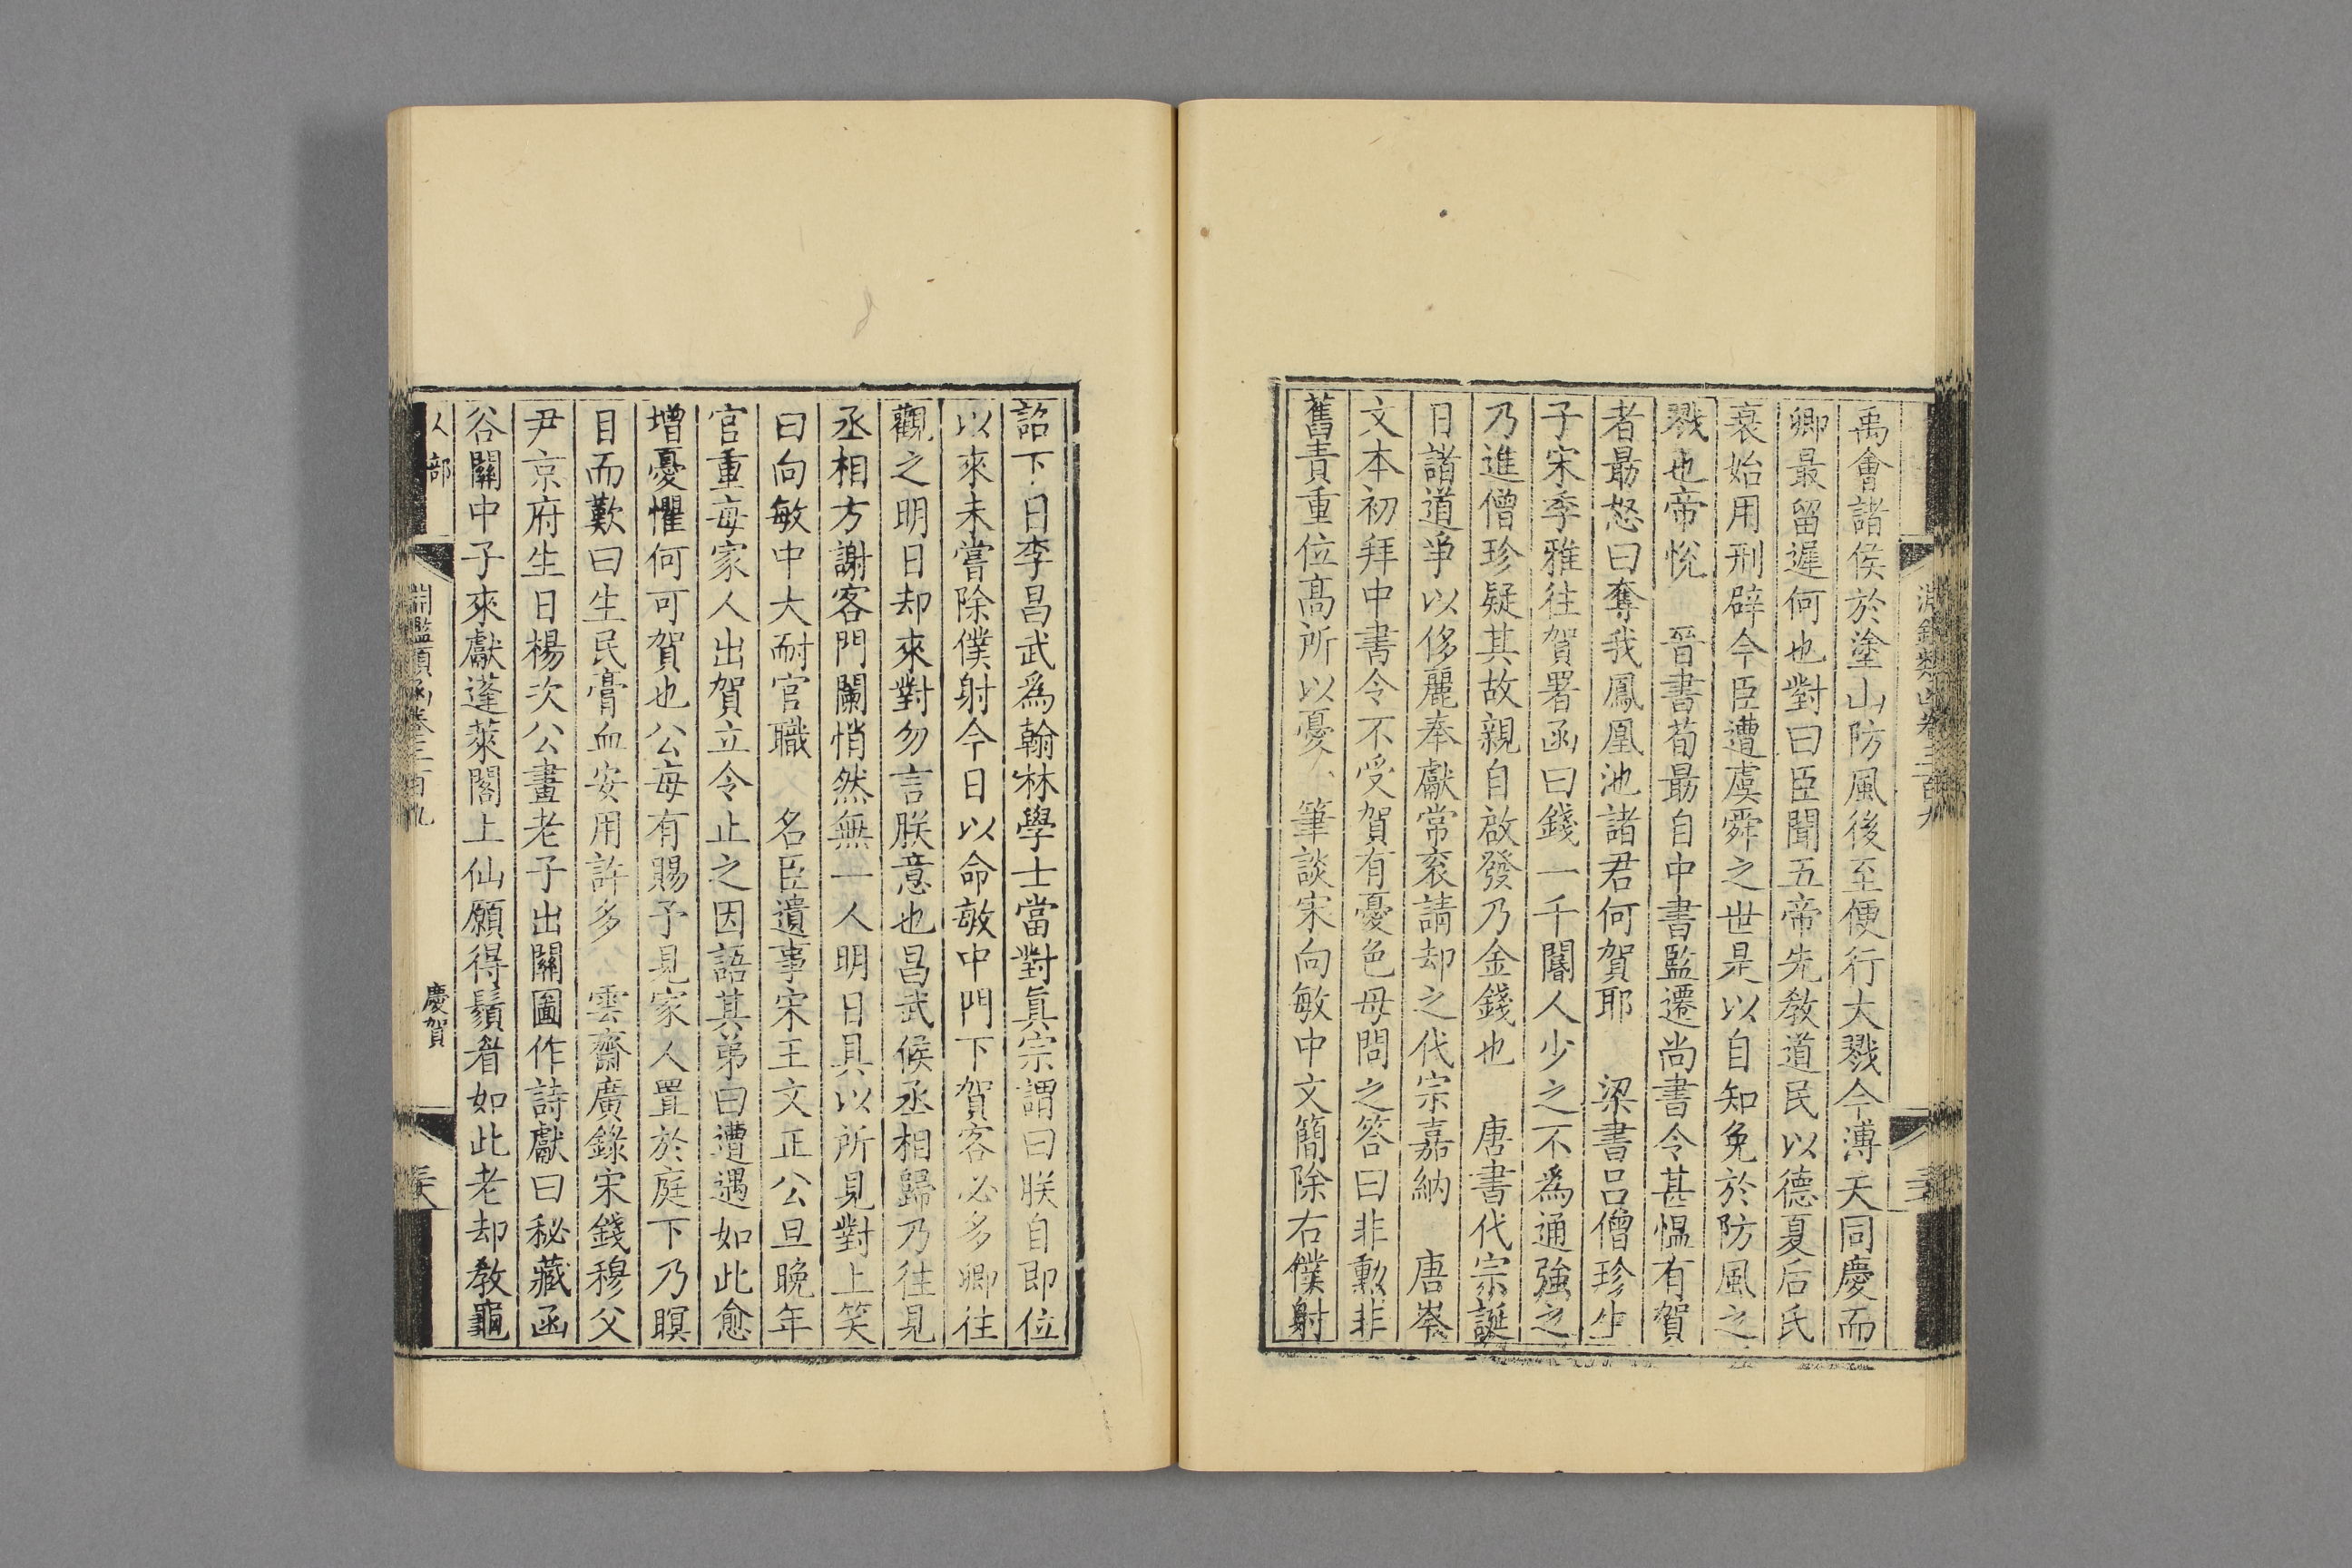 禹會諸侯於塗山防風後至便行大戮今溥天同慶而
卿最留遲何也對曰臣聞五帝先敎道民以德夏后氏
衰始用刑辟今臣遭虞舜之世是以自知免於防風之
戮也帝悅　晉書荀朂自中書監遷尚書令甚愠有賀
者朂怒曰奪我鳳凰池諸君何賀耶　梁書呂僧珍生
子宋季雅往賀署函曰錢一千閽人少之不爲通強之
乃進僧珍疑其故親自啟發乃金錢也　唐書代宗誕
日諸道爭以侈麗奉獻常衮請却之代宗嘉納　唐岑
文本初拜中書令不受賀有憂色母問之答曰非勲非
舊責重位高所以憂　筆談宋向敏中文簡除右僕射
詔下日李昌武爲翰林學士當對眞宗謂曰朕自即位
以來未嘗除僕射今日以命敏中門下賀客必多卿往
觀之明日却來對勿言朕意也昌武候丞相歸乃往見
丞相方謝客門闌悄然無一人明日具以所見對上笑
曰向敏中大耐官職　名臣遺事宋王文正公旦晚年
官重毎家人出賀立令止之因語其弟曰遭遇如此愈
增憂懼何可賀也公毎有賜予見家人置於庭下乃瞑
目而歎曰生民膏血安用許多　雲齋廣錄宋錢穆父
尹京府生日楊次公畫老子出關圖作詩獻曰秘藏函
谷關中子來獻蓬萊閣上仙願得鬚眉如此老却敎龜
人部
淵鑑類函卷三百九
慶賀